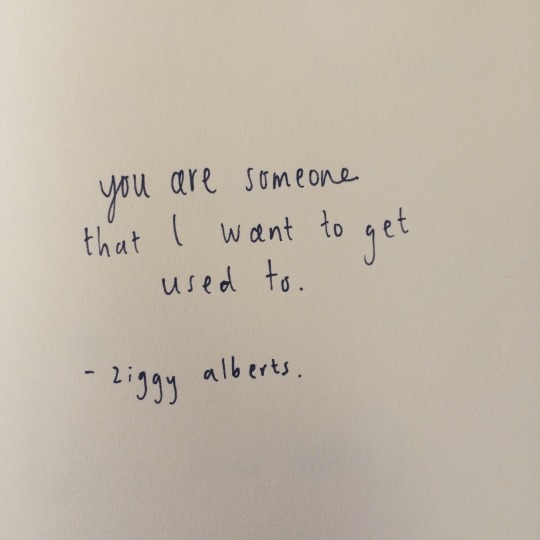 you are someone
that I want to get
used to.
- ziggy alberts.